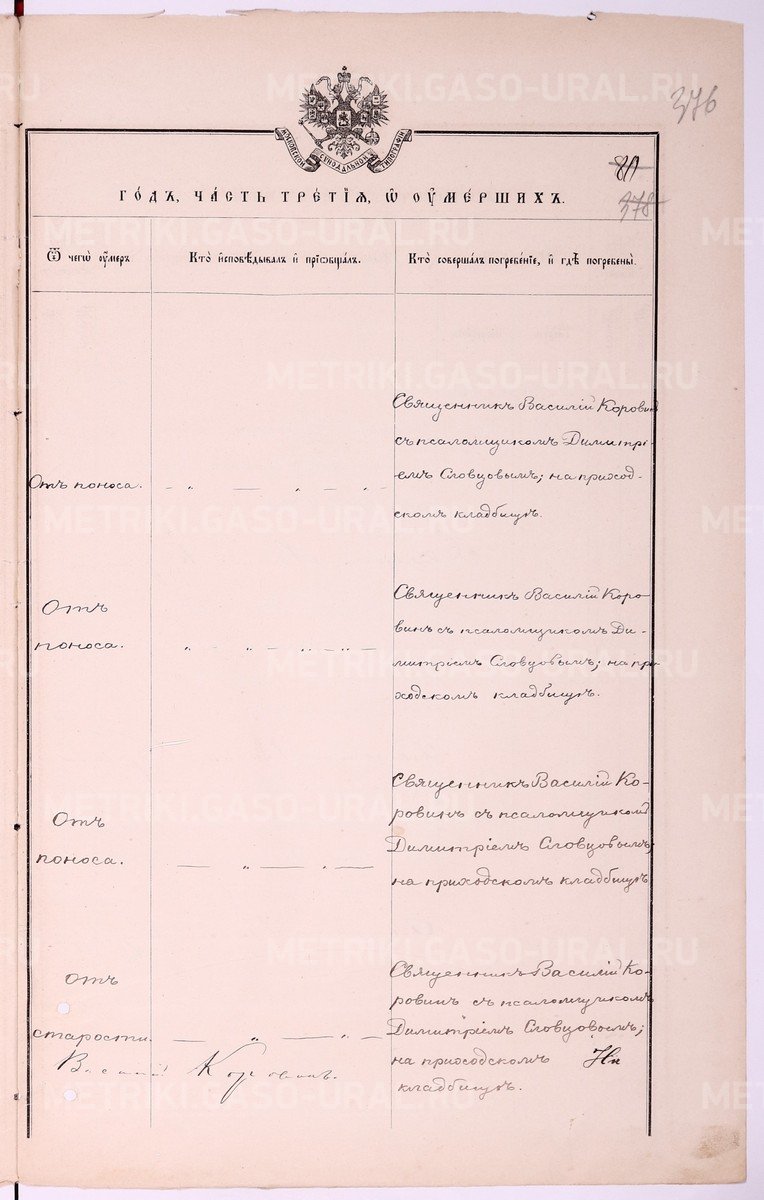 METRIKI.GASO-URAL.RU
376
МОСКОВСКОЙ СѴНОДАЛЬНОЙ ТИПОГРАФІИ
80
378
ГО́ДЪ, ЧА́СТЬ ТРЕ́ТІѦ, Ѡ ОУ҆МЕ́РШИХЪ.
Ѿ чегѡ̀ ᲂу҆́меръ
Кто̀ и҆сповѣ́дывалъ и҆ прїѡбща́лъ.
Кто̀ соверша́лъ погребе́нїе, и҆ гдѣ̀ погребены̀.
Отъ поноса.
Священникъ Василій Коровинъ
съ псаломщикомъ Димитрі-
емъ Словцовымъ; на приход-
скомъ кладбищѣ.
Отъ
поноса.
Священникъ Василій Коро-
винъ съ псаломщикомъ Ди-
митріемъ Словцовымъ; на при-
ходскомъ кладбищѣ.
Отъ
поноса.
Священникъ Василій Ко-
ровинъ съ псаломщикомъ
Димитріемъ Словцовымъ;
на приходскомъ кладбищѣ
Отъ
старости.
Священникъ Василій Ко-
ровинъ съ псаломщикомъ
Димитріемъ Словцовымъ;
на приходскомъ
кладбищѣ.
Василій Коровинъ.